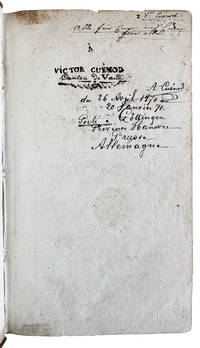 à
VICTOR CUÉNOD
Canton de Vaud
A. Cuénod
du 26 Avril 1870 au
20 Janvier 71.
Porté à Göttingen
Province Hanovre
Prusse
Allemagne